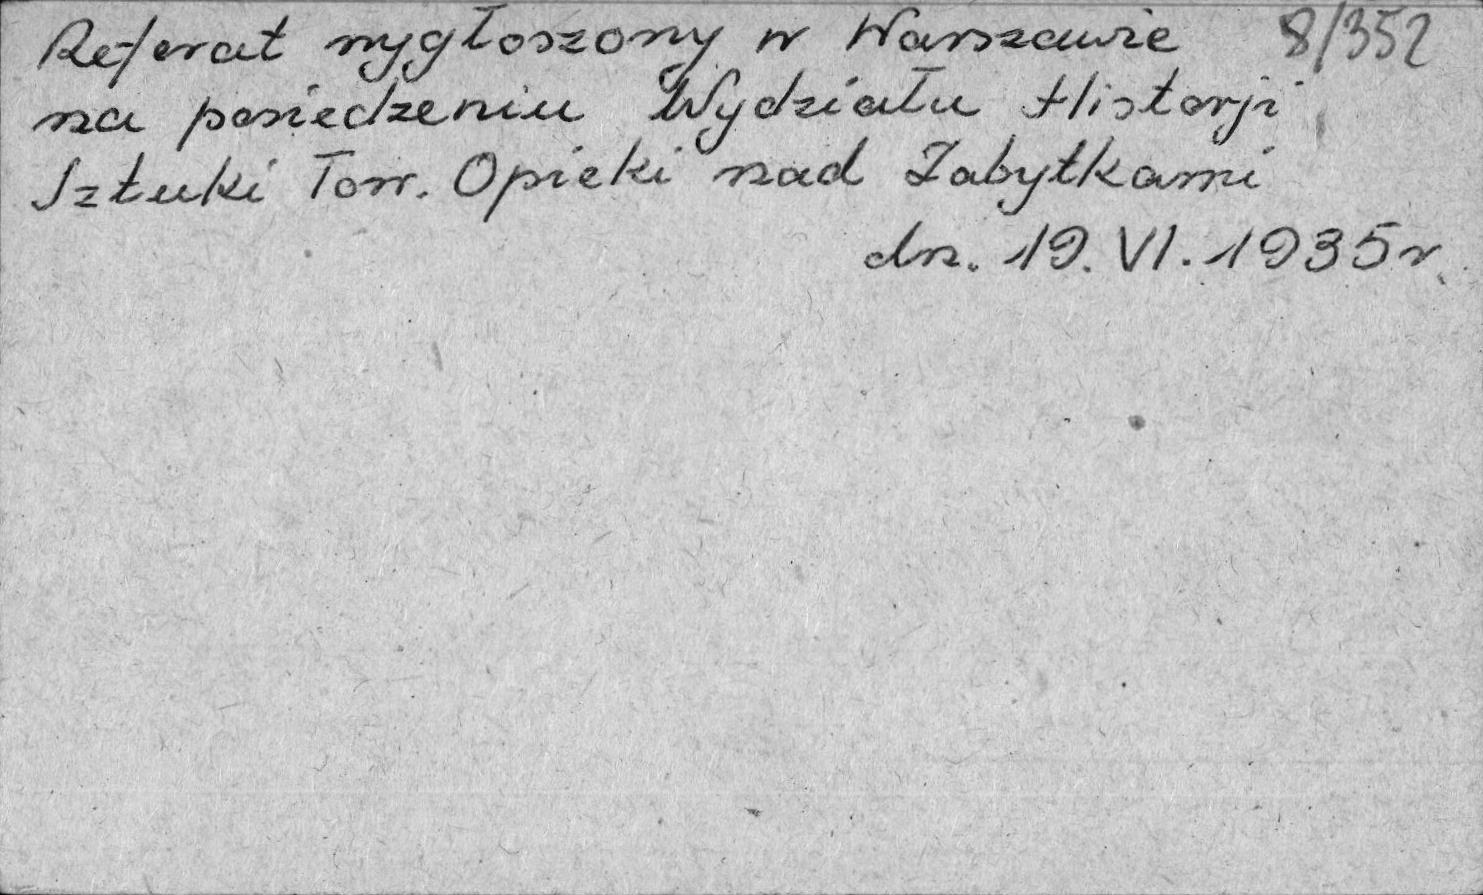 Referat wygłoszony w Warszawie 8/352
na posiedzeniu Wydziału Historji
Sztuki Tow. Opieki nad Zabytkami
dn. 19. VI. 1935 r.